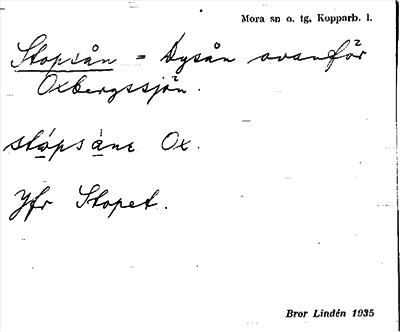 Mora sn o. tg, Kopparb. l.
Stopsån = Dysån ovanför
Oxbergssjön.
stópsàne Ox.
Jfr Stopet.
Bror Lindén 1935